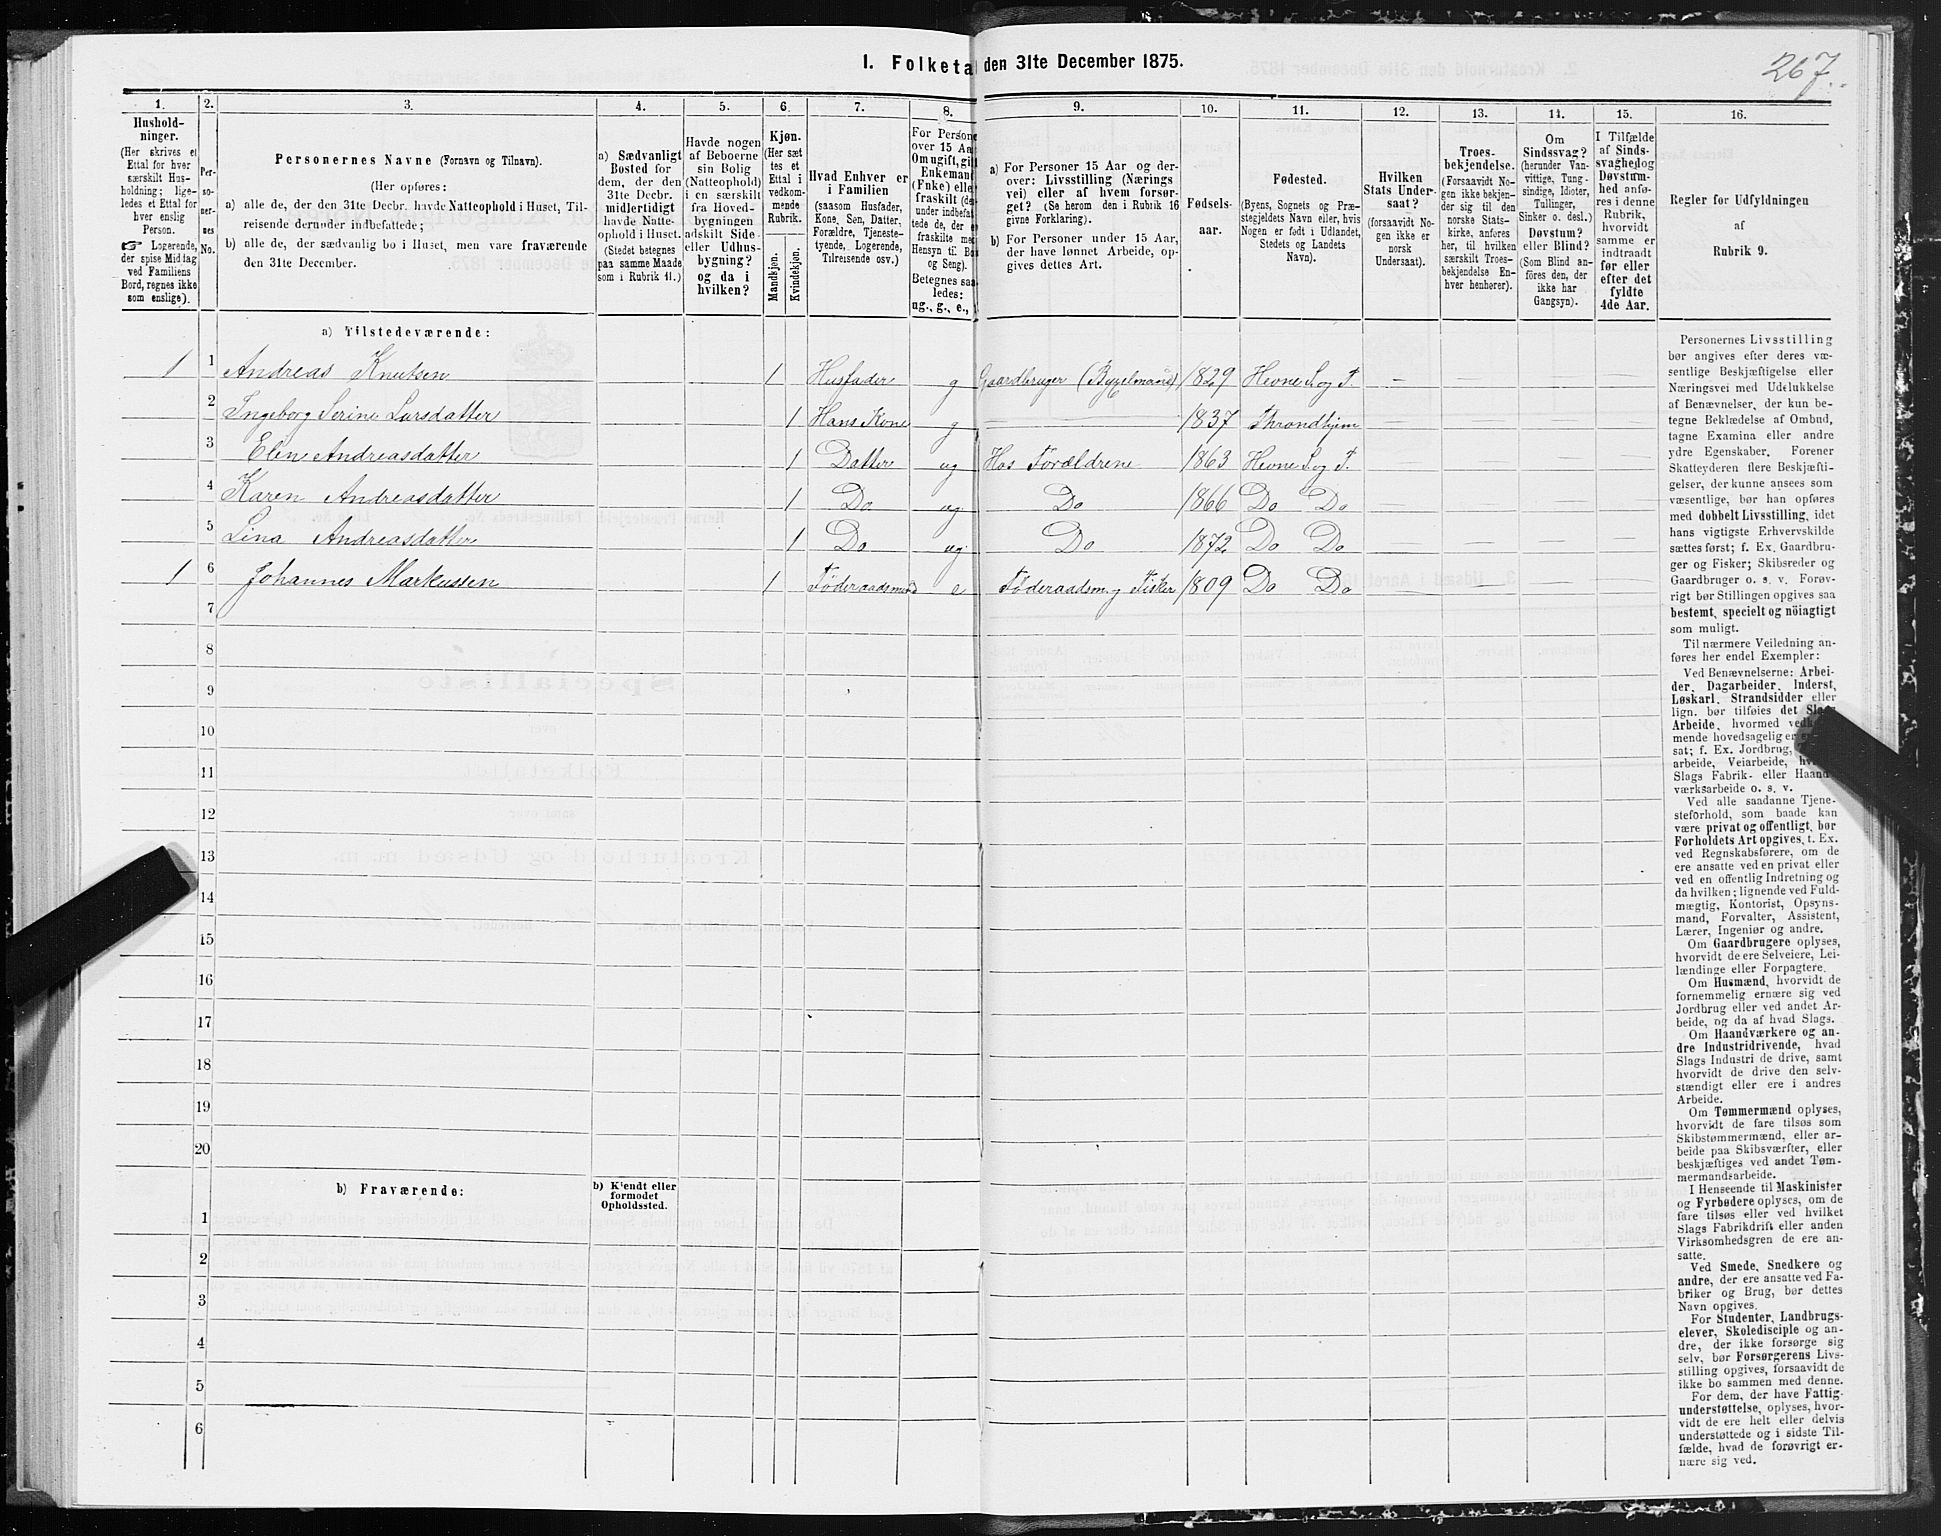 267.
1. Folketa den 31te December 1875.
1.
Hushold-
ninger.
(Her skrives et
Ettal for hver
særskilt Hus-
holdning; lige-
ledes et Ettal for
hver enslig
Person.
☞ Logerende,
der spise Middag
ved Familiens
Bord, regnes ikke
som enslige).
2.
Per-
so-
ner-
nes
No.
3.
Personernes Navne (Fornavn og Tilnavn).
(Her opføres:
a) alle de, der den 31te Decbr. havde Natteophold i Huset, Til-
reisende derunder indbefattede;
b) alle de, der sædvanlig bo i Huset, men vare fraværende
den 31te December.
4.
a) Sædvanligt
Bosted for
dem, der den
31te Decbr.
midlertidigt
havde Natte-
ophold i Huset.
(Stedet betegnes
paa samme Maade
som i Rubrik 11.)
5.
Havde nogen
af Beboerne
sin Bolig
(Natteophold)
i en særskilt
fra Hoved-
bygningen
adskilt Side-
eller Udhus-
bygning?
og da i
hvilken?
6.
Kjøn.
(Her sæt
tes et
Ettal i
vedkom-
mende
Rubrik.
Mandkjøn.
Kvindekjøn.
7.
Hvad Enhver er
i Familien
(saasom Husfader,
Kone, Søn, Datter,
Forældre, Tjeneste-
tyende, Logerende,
Tilreisende osv.)
8.
For Persone
over 15 Aa
Om ugift, gif
Enkemand
(Enke) elle
fraskilt (de
under indbefat
tede de, der e
fraskilte me
Hensyn til Bo
og Seng).
Betegnes saa
ledes:
ug., g., e.,
9.
a) For Personer 15 Aar og der-
over: Livsstilling (Nærings
vei) eller af hvem forsør-
get? (Se herom den i Rubrik 16
givne Forklaring).
b) For Personer under 15 Aar,
der have lønnet Arbeide, op-
gives dettes Art.
10.
Fødsels-
aar.
11.
Fødested.
(Byens, Sognets og Præ-
stegjeldets Navn eller, hvis
Nogen er født i Udlandet,
Stedets og Landets
Navn).
12.
Hvilken
Stats Under-
saat?
(forsaavidt No-
gen ikke er
norsk
Undersaat).
13.
Troes-
bekjendelse.
(Forsaavidt No-
gen ikke bekjen-
der sig til den
norske Stats-
kirke, anføres
her, til hvilken
særskilt Troes-
bekjendelse En-
hver henhører).
14.
Om
Sindssvag?
(herunder Van-
vittige, Tung-
sindige, Idioter,
Tullinger,
Sinker o. desl.)
Døvstum?
eller Blind?
(Som Blind an-
føres den, der
ikke har
Gangsyn).
15.
I Tilfælde
af Sinds-
svaghed og
Døvstum-
hed anfø-
res i denne
Rubrik,
hvorvidt
samme er
indtraadt
før eller
efter det
fyldte
4de Aar.
16.
Regler før Udfyldningen
af
Rubrik 9.
a) Tilstedeværende:
1 1 Andreas Knutsen 1 Husfader g Gaardbruger (Bygselmand) 1829 Hevne S. og P. —
2 Ingeborg Serine Larsdatter 1 Hans Kone g — 1837 Throndhjem — — — —
3 Elen Andreasdatter 1 Datter ug Hos Forældrene 1863 Hevne S. og P. — — — —
4 Karen Andreasdatter 1 Do ug Do 1866 Do Do — — — —
5 Lina Andreasdatter 1 Do ug Do 1872 Do Do — — — —
1 6 Johannes Markussen 1 Føderaadsmand e Føderaadsm. og Fisker 1809 Do Do — — — —
7
8
9
10
11
12
13
14
15
16
17
18
19
20
b) Fraværende:
b) Kjendt eller
formodet
Opholdssted.
1
2
3
4
5
6
Personernes Livsstilling
bør angives efter deres væ-
sentlige Beskjæftigelse eller
Næringsvei med Udelukkelse
af Benævnelser, der kun be-
tegne Beklædelse af Ombud,
tagne Examina eller andre
ydre Egenskaber. Forener
Skatteyderen flere Beskjæfti-
gelser, der kunne ansees som
væsentlige, bør han opføres
med dobbelt Livsstilling, idet
hans vigtigste Erhvervskilde
sættes først; f. Ex. Gaardbru-
ger og Fisker; Skibsreder og
Gaardbruger o. s. v. Forøv-
rigt bør Stillingen opgives saa
bestemt, specielt og nöiagtigt
som muligt.
Til nærmere Veiledning an-
føres her endel Exempler:
Ved Benævnelserne: Arbei-
der, Dagarbeider, Inderst,
Løskarl, Strandsidder eller
lign. bør tilføies det Slags
Arbeide, hvormed vedkom-
mende hovedsagelig er
sat; f. Ex. Jordbrug,
arbeide, Veiarbeide,
Slags Fabrik- eller Haand-
værksarbeide o. s. v.
Ved alle saadanne Tjene-
steforhold, som baade kan
være privat og offentligt, bør
Forholdets Art opgives, t. Ex.
ved Regnskabsførere, om de
ere ansatte ved en privat eller
ved en offentlig Indretning og
da hvilken; lignende ved Fuld-
mægtig, Kontorist, Opsyns-
mand, Forvalter, Assistent,
Lærer, Ingeniør og andre.
Om Gaardbrugere oplyses,
hvorvidt de ere Selveiere, Lei-
lændinge eller Forpagtere.
Om Husmænd, hvorvidt de
fornemmelig ernære sig ved
Jordbrug eller ved andet Ar-
beide, og da af hvad Slags.
Om Haandværkere og an-
dre Industridrivende, hvad
Slags Industri de drive, samt
hvorvidt de drive den selv-
stændigt eller ere i andres
Arbeide.
Om Tømmermænd oplyses,
hvorvidt de fare tilsøs som
Skibstømmermænd, eller ar-
beide paa Skibsværfter, eller
beskjæftiges ved andet Tøm-
mermandsarbeide.
I Henseende til Maskinister
og Fyrbødere oplyses, om de
fare tilsøs eller ved hvilket
Slags Fabrikdrift eller anden
Virksomhedsgren de ere an-
satte.
Ved Smede, Snedkere og
andre, der ere ansatte ved Fa-
briker og Brug, bør dettes
Navn opgives.
For Studenter, Landbrugs-
elever, Skoledisciple og an-
dre, der ikke forsørge sig
selv, bør Forsørgerens Livs-
stilling opgives, forsaavidt de
ikke bo sammen med denne.
For dem, der have Fattig-
understøttelse, oplyses, hvor-
vidt de ere helt eller delvis
understøttede og i sidste Til-
fælde, hvad de forøvrigt er-
nære sig ved.